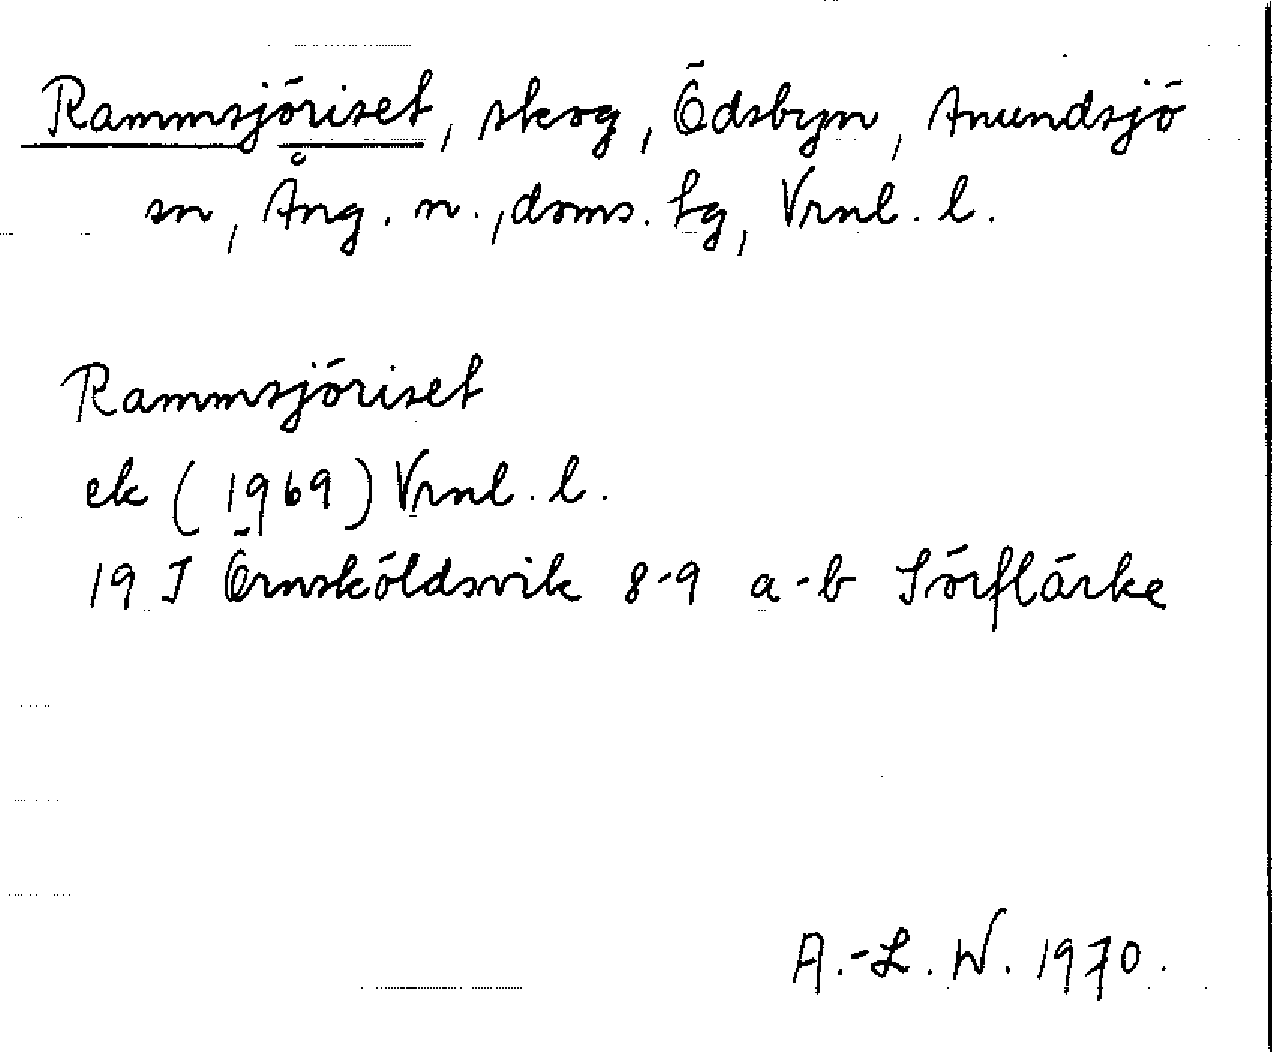 Rammsjöriset, skog, Ödsbyn, Anundsjö
sn, Ång. n., doms. tg, Vrnl. l.
Rammsjöriset
ek (1969) Vrnl. l.
19 I Örnsköldsvik 8-9 a-b Sörflärke
A.-L. W. 1970.